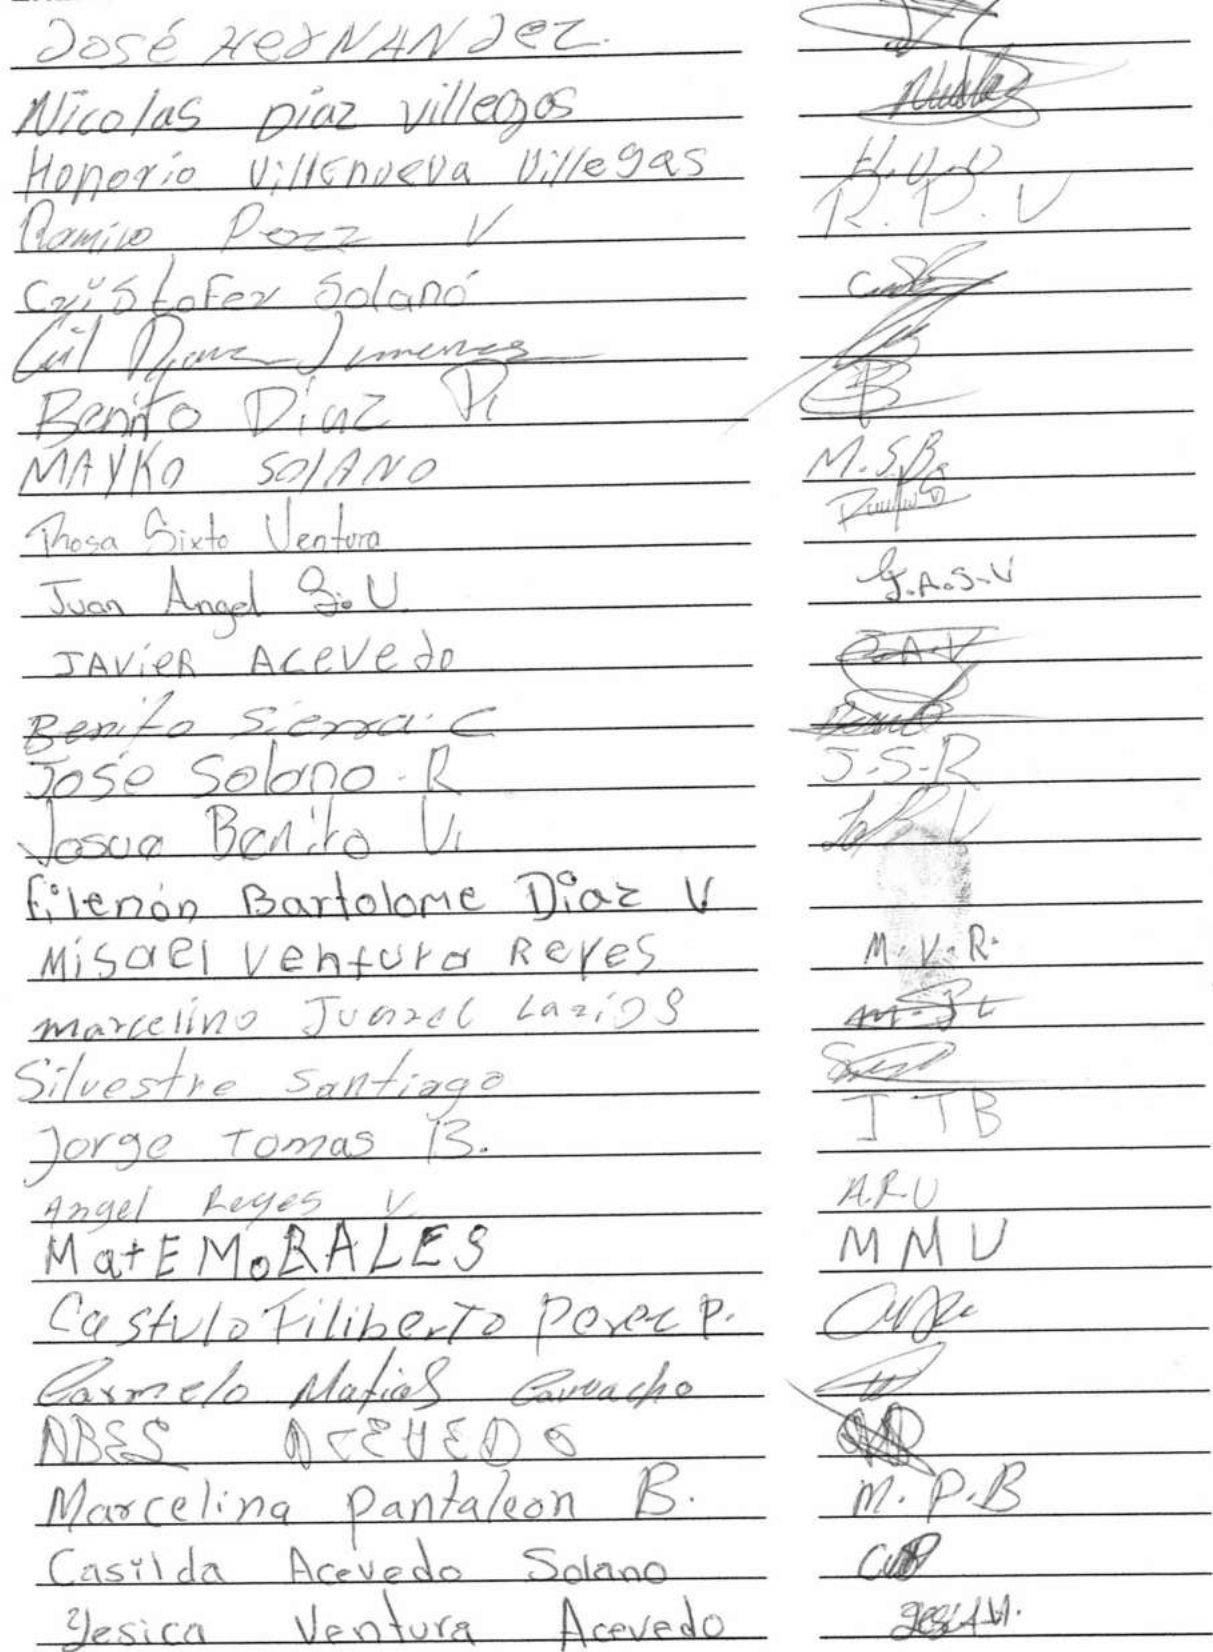 José HerNANdez.
Nicolas Diaz villegos
Honorio Villenueva Villegas H.V.V
Ramiro Perez V R.P.V
Cristofer Solanó
Gil Jimenes
Benito Díaz B
MAYKO SOlANO M.S.B.
Rosa Sixto Ventura
Juan Angel S. U. J.A.S.V
JAVIER ACeVedo
Benito Sierra. C
Jose Solano. R J.S.R
Josue Benito V.
Filemón Bartolome Diaz V
Misael Ventura Reyes M.V.R.
marcelino Juarez Lazios
Silvestre Santiago
Jorge Tomas B. J T B
Angel Reyes V. A.R.V
MatE MoRALES M M V
Castulo Filiberto Perez P.
Carmelo Matias Camacho
ABES ACEVEDO
Marcelina Pantaleon B. M.P.B
Casilda Acevedo Solano
Yesica Ventura Acevedo